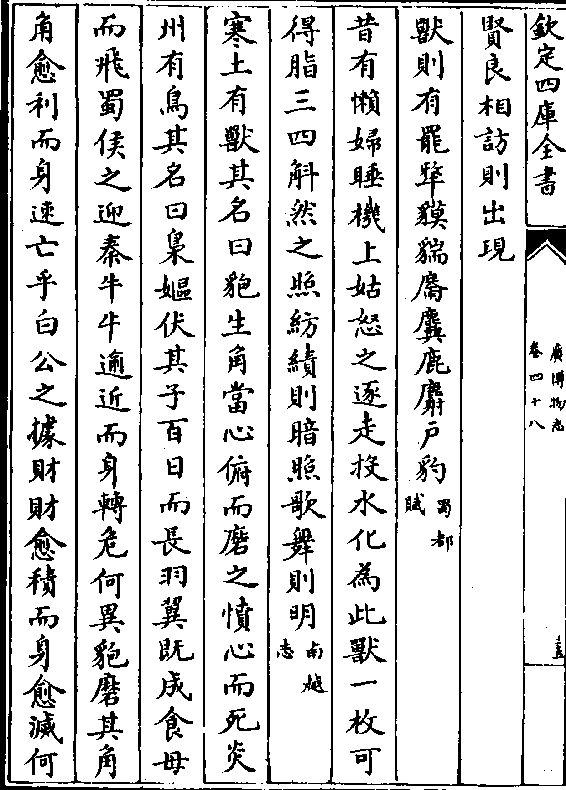 欽定四庫全書
廣博物志
卷四十八
賢良相訪則出現
獸則有罷犛貘貒麡麌鹿麝戸豹蜀都賦
昔有懶婦睡機上姑怒之逐走投水化為此獸一枚可
得脂三四斛然之照紡績則暗照歌舞則明南越志
寒土有獸其名曰䶌生角當心俯而磨之憤心而死炎
州有鳥其名曰梟嫗伏其子百日而長羽翼既成食母
而飛蜀侯之迎秦牛牛逾近而身轉危何異䶌磨其角
角愈利而身速亡乎白公之據財財愈積而身愈滅何